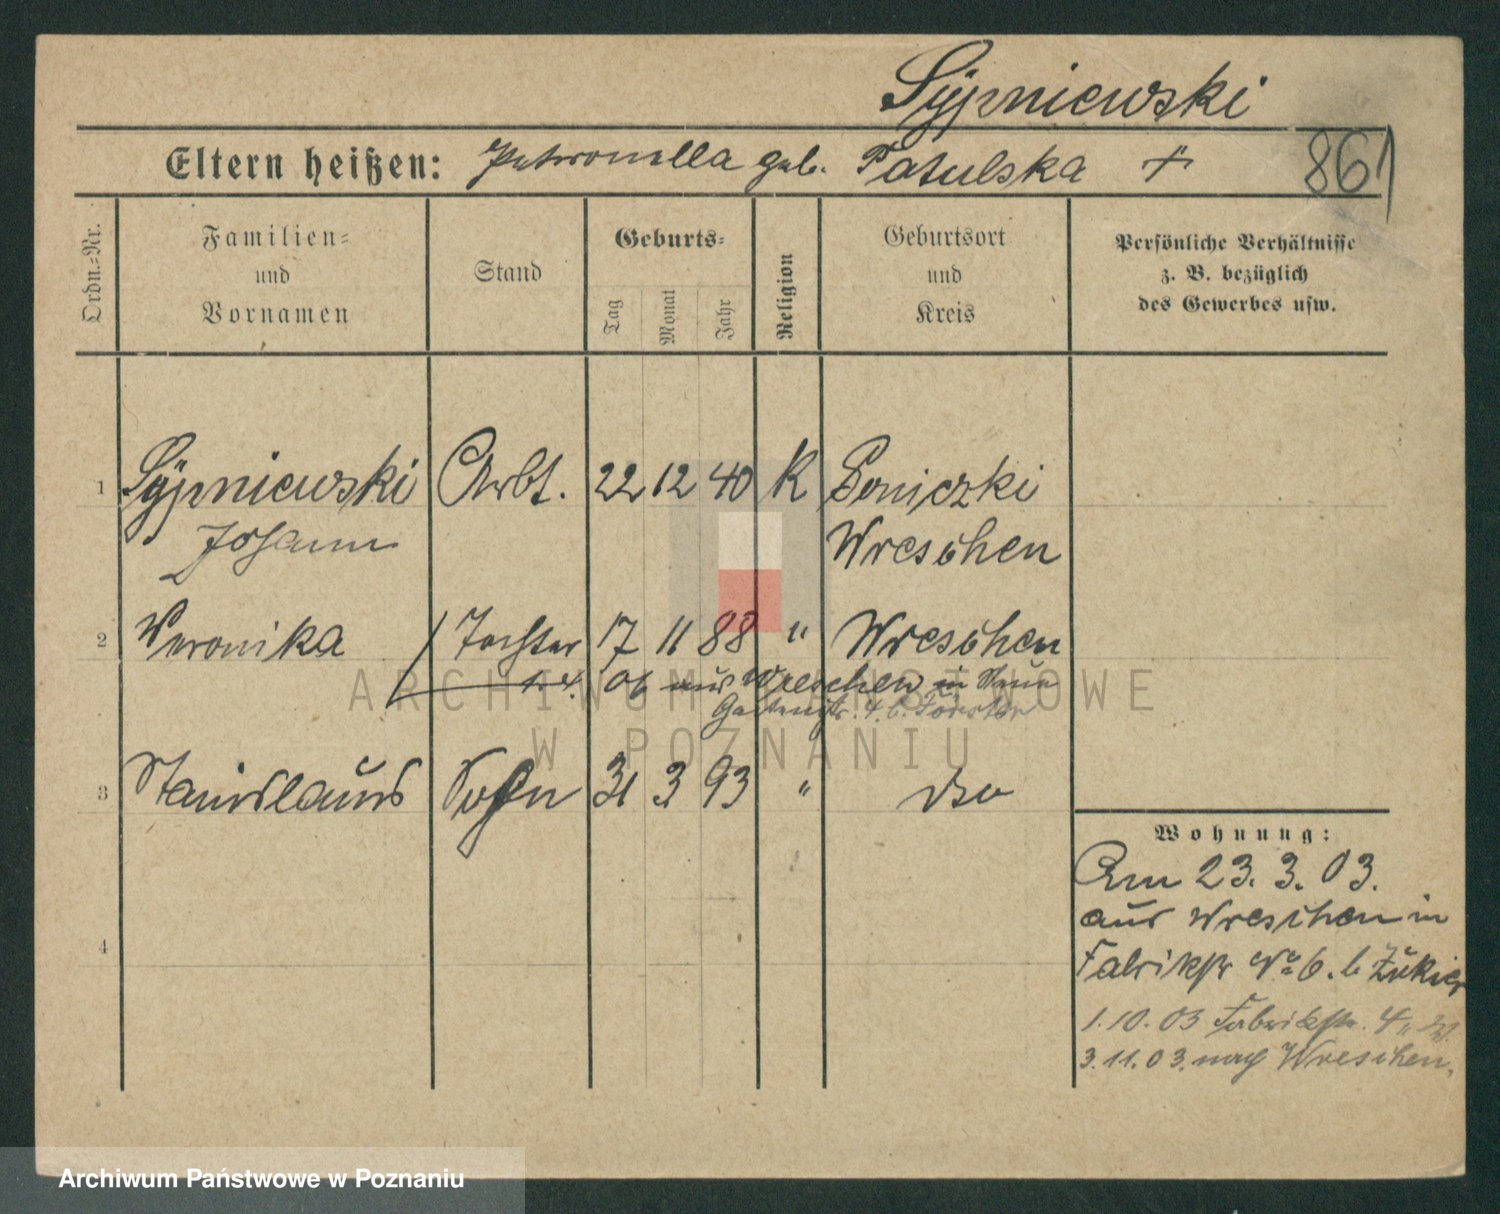 Sÿpniewski
Eltern heißen: Petronella geb. Patulska +
861
Ordn.=Nr.
Familien=
und
Vornamen
Stand
Geburts=
Tag
Monat
Jahr
Religion
Geburtsort
und
Kreis
Persönliche Verhältnisse
z. B. bezüglich
des Gewerbes usw.
1 Sÿpniewski Arbt. 22 12 40 K Soniczki
Johann Wreschen
2 Weronika Tochter 17 11 88 " Wreschen
1.4. 06 aus Wreschen in
Gartenstr. 4. b. Förster
3 Stanislaus Sohn 31 3 93 " dso
4
Wohnung:
Am 23. 3. 03.
aus Wreschen in
Fabrikstr No 6. b Zukier
1.10.03 Fabrikstr. 4
3.11.03. nach Wreschen.
ARCHIWUM PAŃSTWOWE
W POZNANIU
Archiwum Państwowe w Poznaniu